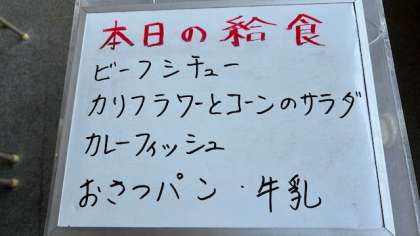 本日の給食
ビーフシチュー
カリフラワーとコーンのサラダ
カレーフィッシュ
おさつパン・牛乳